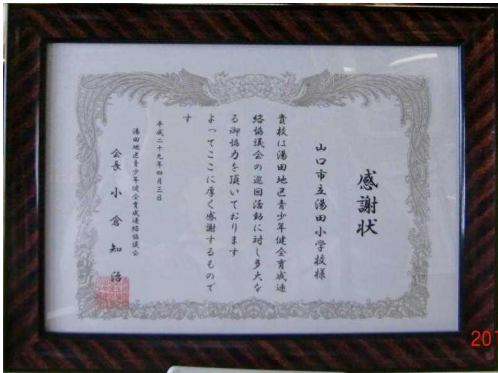 感謝状
山口市立湯田小学校様
貴校は湯田地区青少年健全育成連
絡協議会の巡回活動に対し多大な
る御協力を頂いております
よってここに厚く感謝するもので
す
平成二十九年四月三日
湯田地区青少年健全育成連絡協議会
会長 小倉知治
201